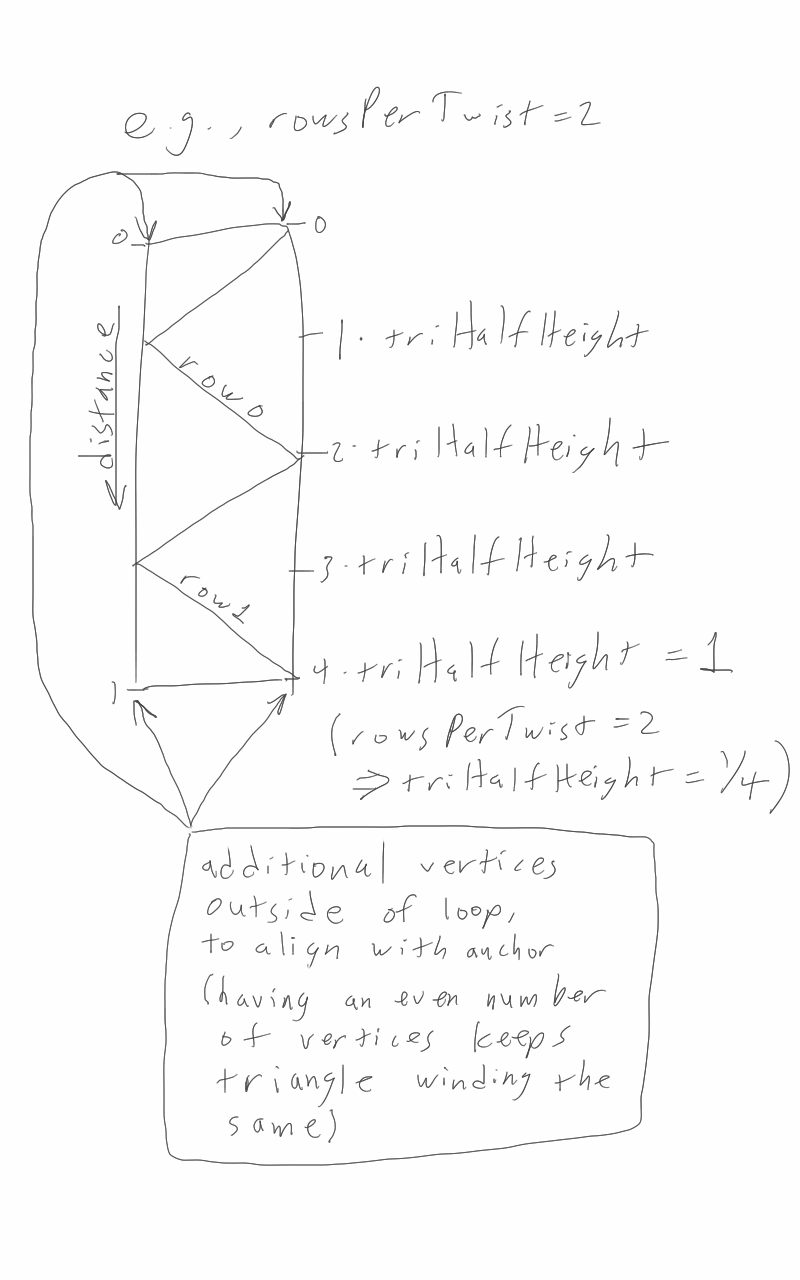 e.g., rowsPerTwist=2
0
0
1·triHalfHeight
distance
row0
2·triHalfHeight
3·triHalfHeight
row1
4·triHalfHeight = 1
1
(rowsPerTwist=2
⇒triHalfHeight=1/4)
additional vertices
outside of loop,
to align with anchor
(having an even number
of vertices keeps
triangle winding the
same)